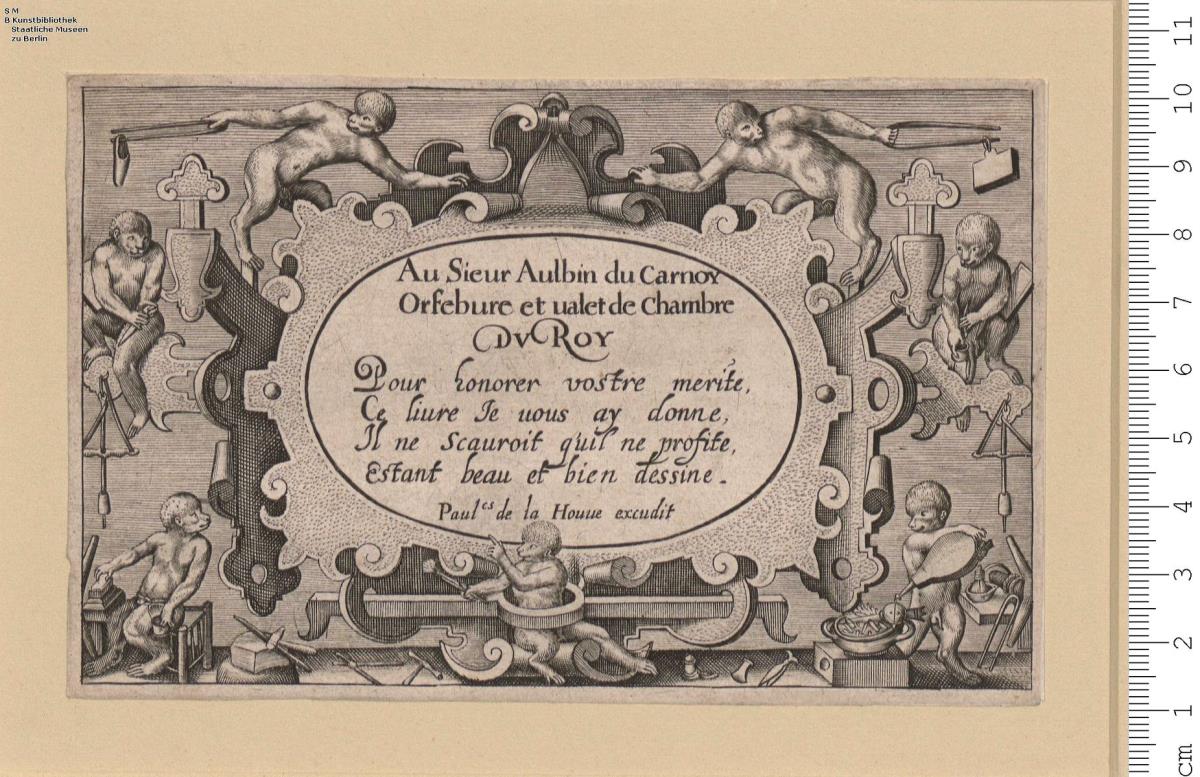 S M
B Kunstbibliothek
Staatliche Museen
zu Berlin
Au Sieur Aulbin du Carnoy
Orfebure et ualet de Chambre
DV ROY
Pour honorer vostre merite,
Ce liure Ie uous ay donne,
Il ne Scauroit q'uil ne profite,
Estant beau et bien dessine.
Paul.es de la Houue excudit
11
10
9
8
7
6
5
4
3
2
1
cm